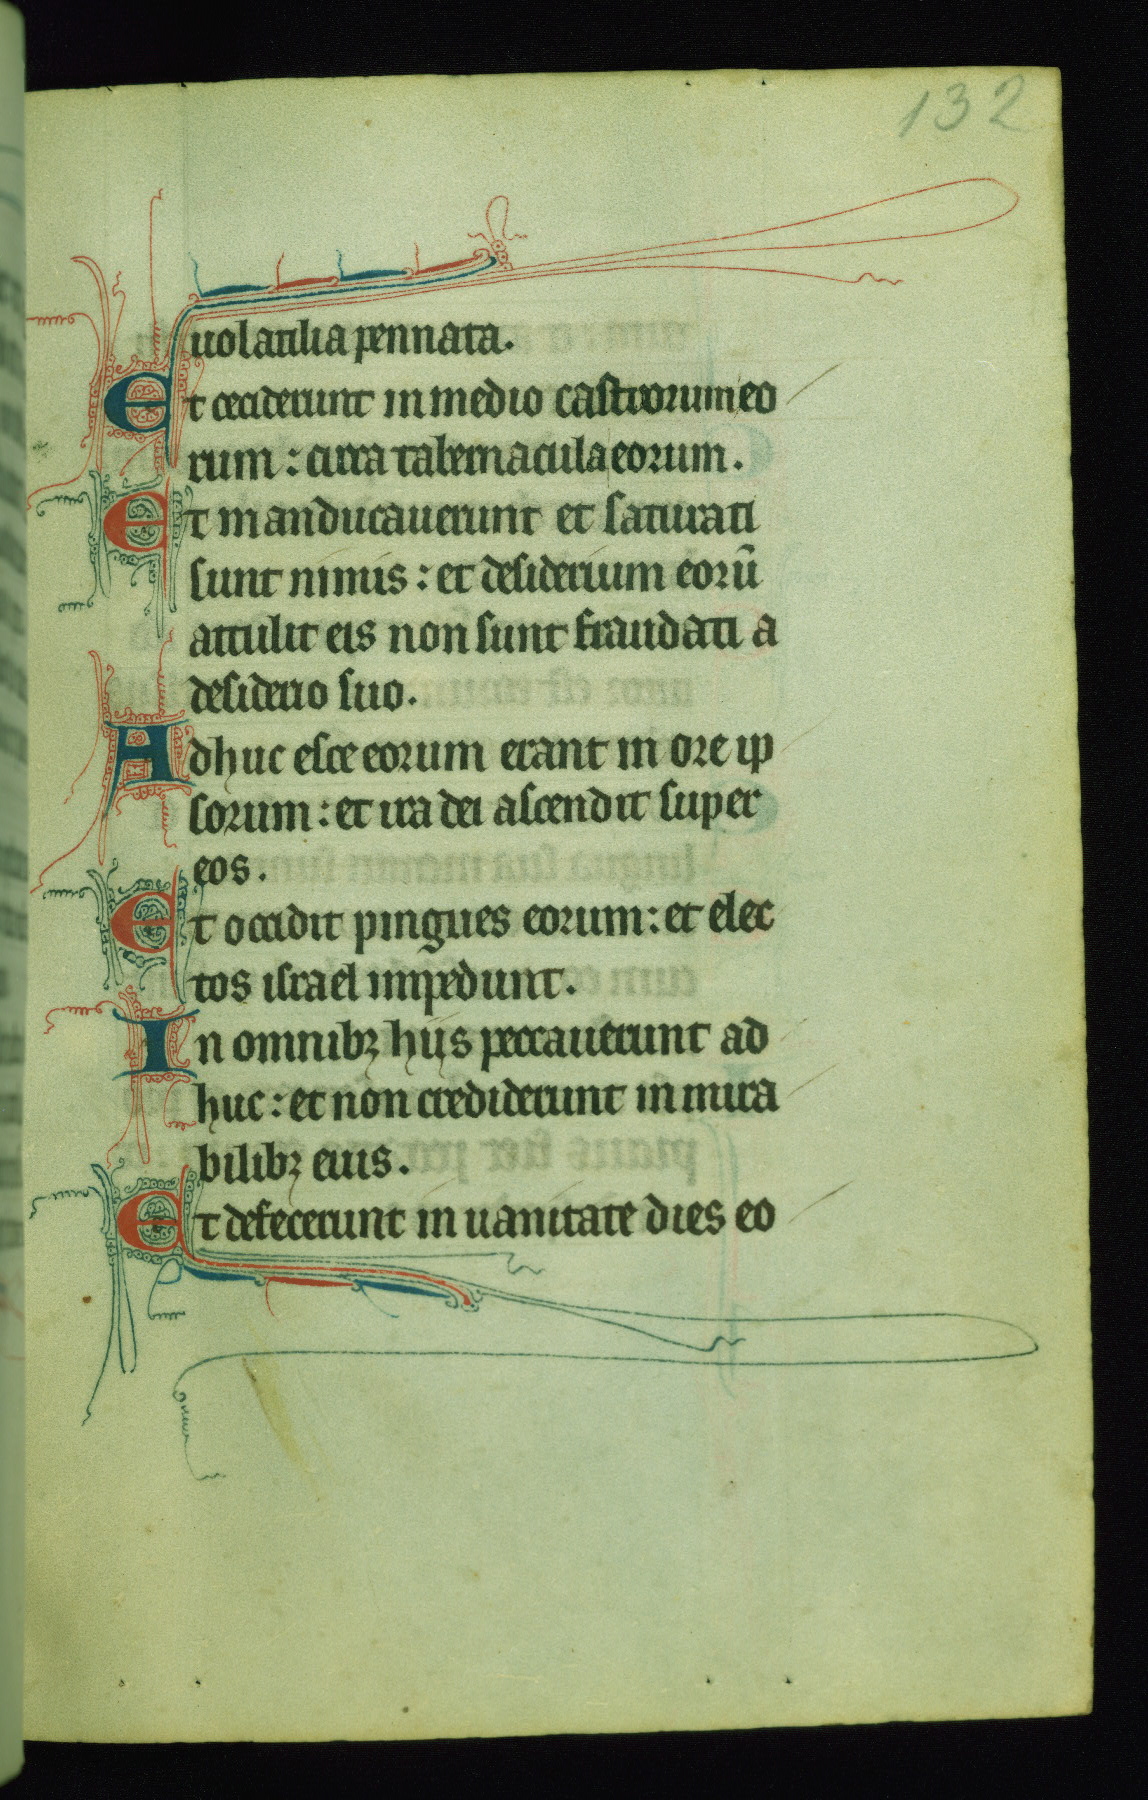 132
uolatilia pennata.
Et ceciderunt in medio castrorum eo
rum : circa tabernacula eorum.
Et manducauerunt et saturati
sunt nimis : et desiderium eorū
attulit eis non sunt fraudati a
desiderio suo.
Adhuc esce eorum erant in ore ip
sorum : et ira dei ascendit super
eos.
Et occidit pingues eorum : et elec
tos israel impediuit.
In omnibꝫ hiis peccauerunt ad
huc : et non crediderunt in mira
bilibꝫ eius.
Et defecerunt in uanitate dies eo